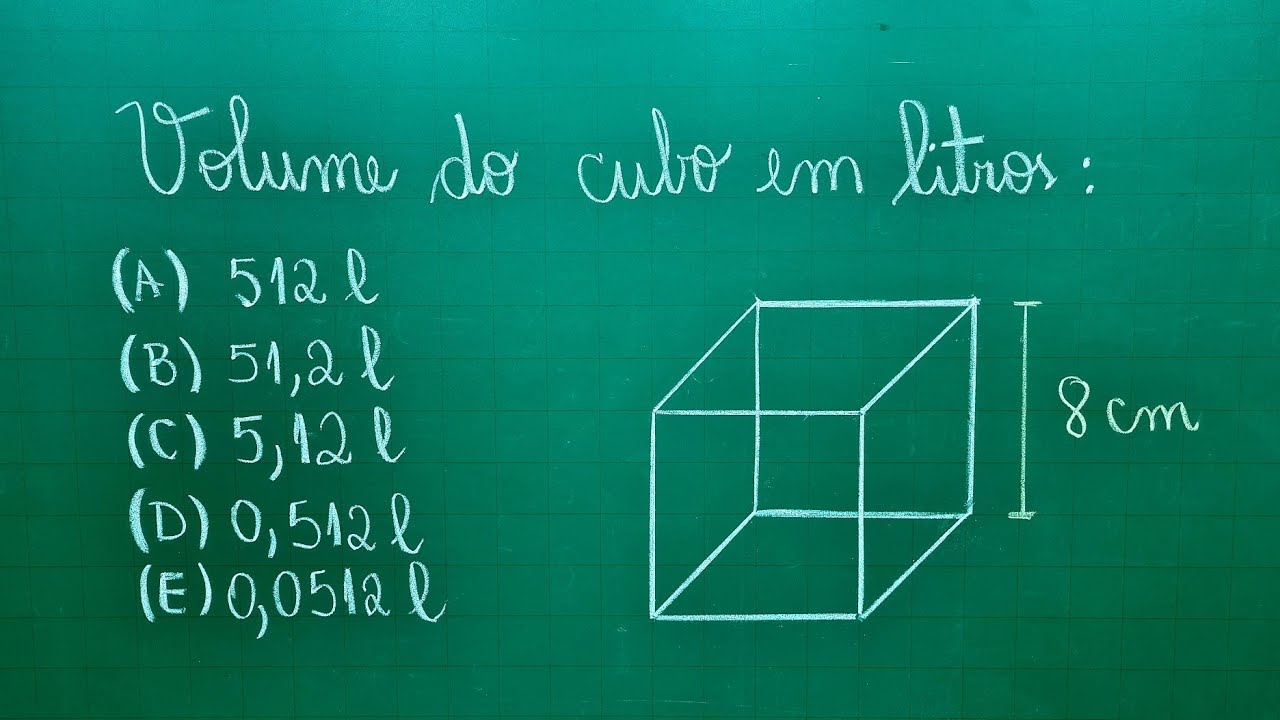 Volume do cubo em litros:
(A) 512 l
(B) 51,2 l
(C) 5,12 l
(D) 0,512 l
(E) 0,0512 l
8 cm